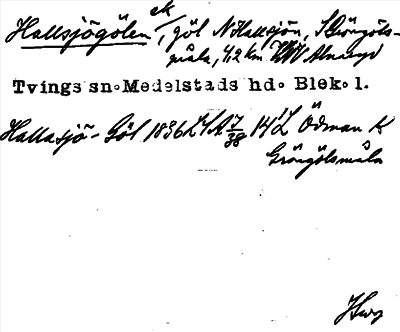 Hallsjögölen ek, göl N Hallasjön, S Gröngöls-
måla, 4,2 km Alnaryd
Tvings sn. Medelstads hd. Blek. l.
Hallasjö-Göl 1836 LSA 7/38 14 L Ödman K
Gröngölsmåla